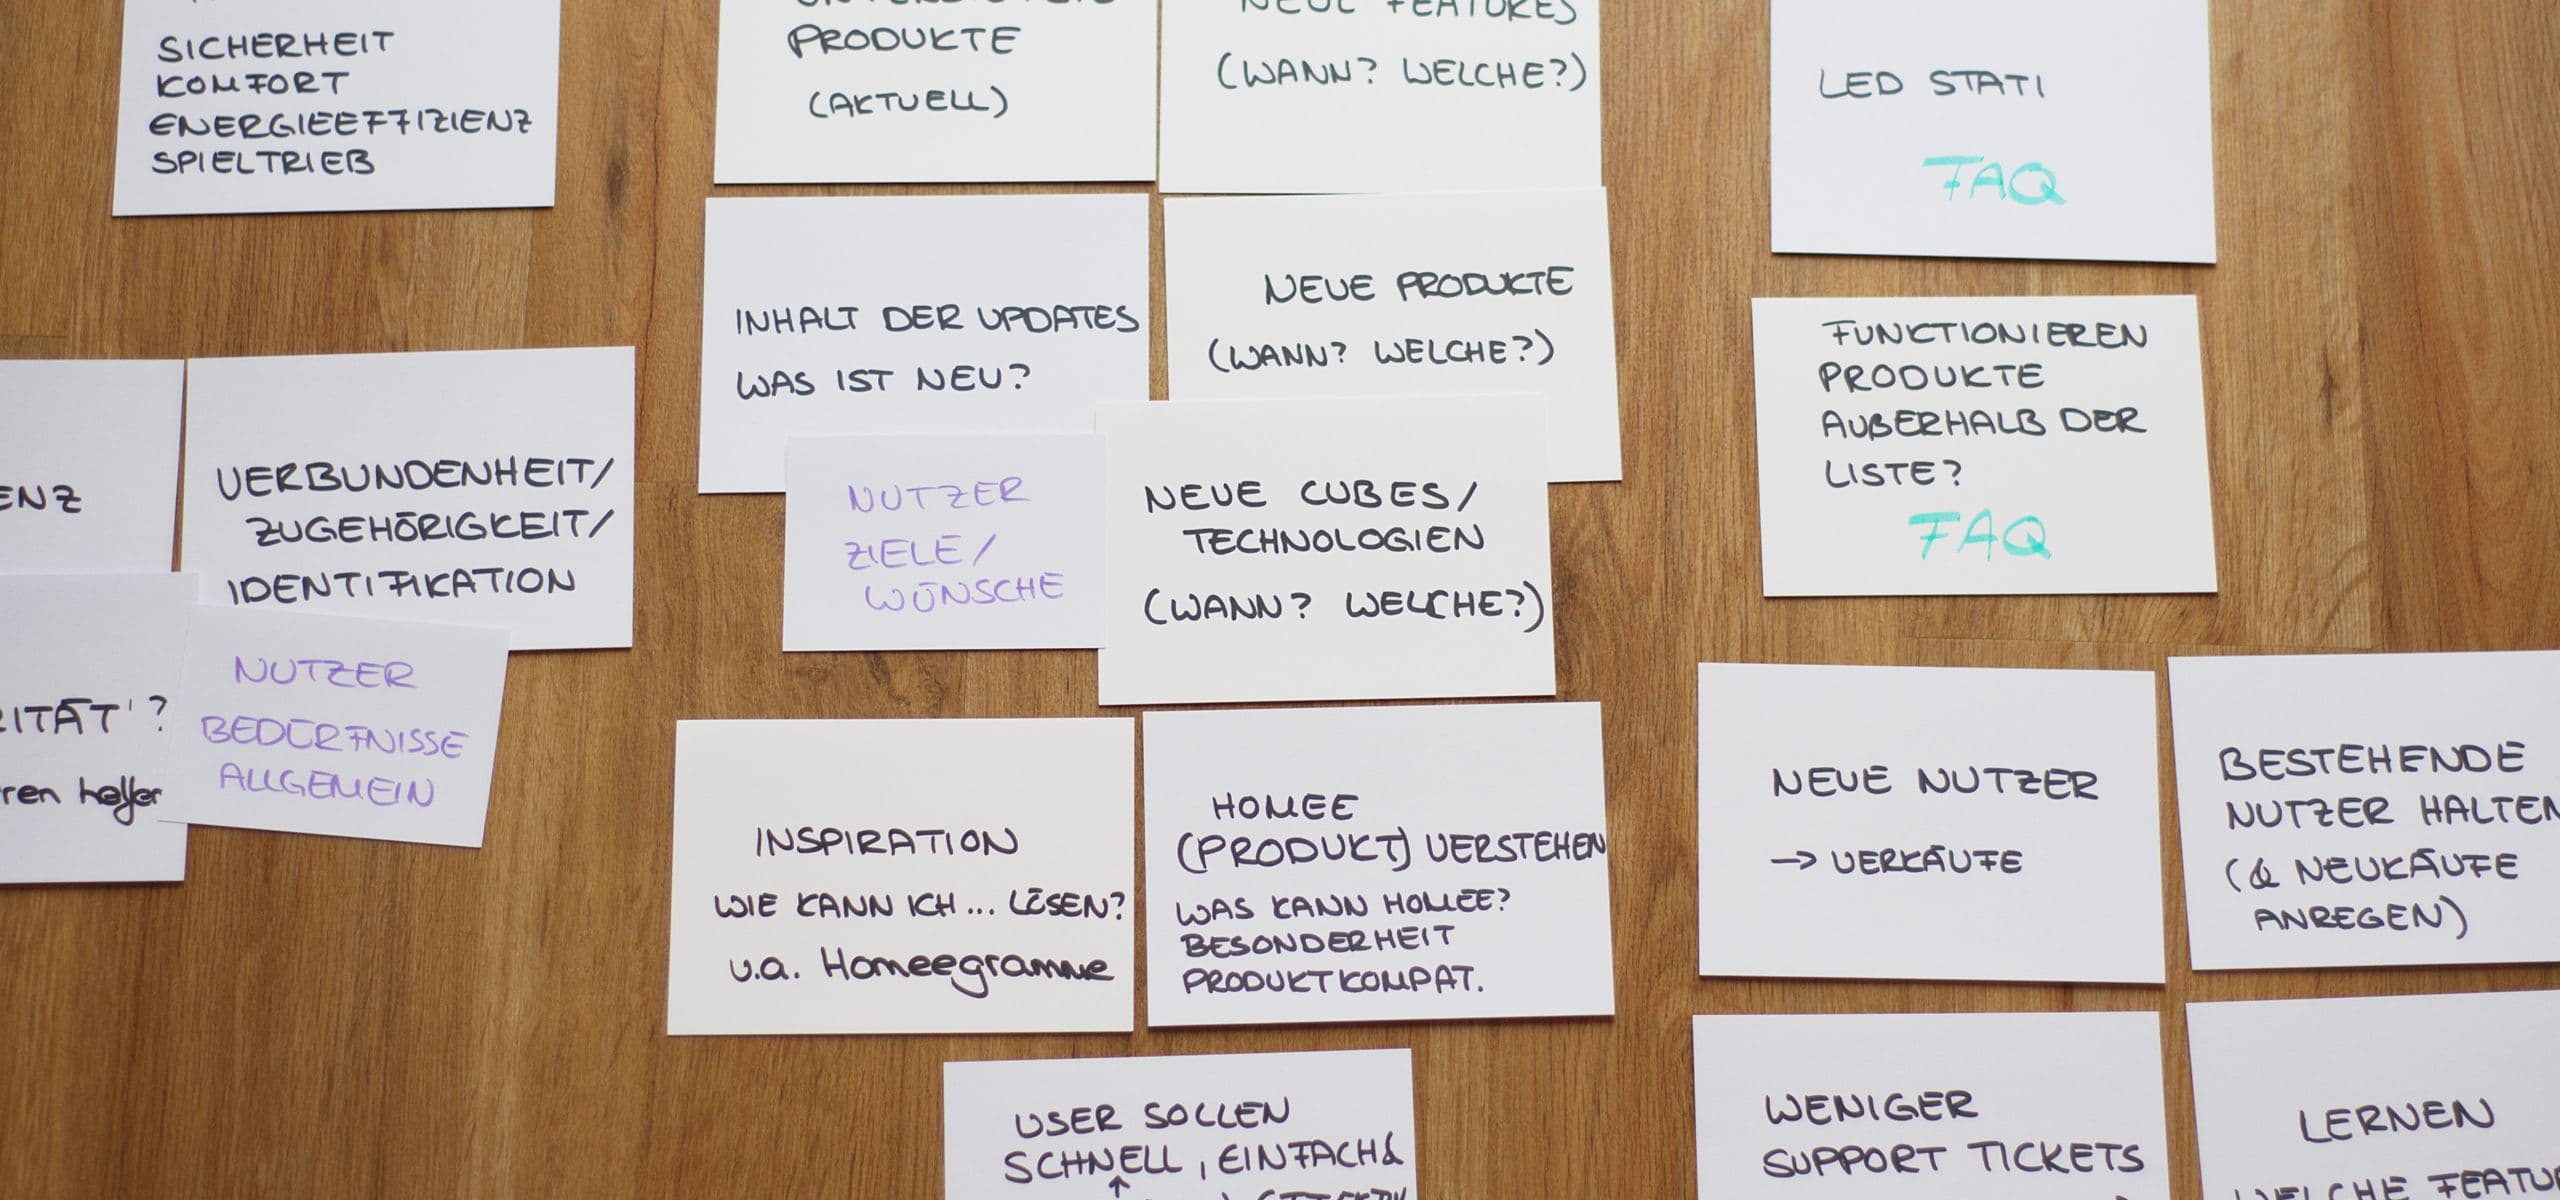 SICHERHEIT
KOMFORT
ENERGIEEFFIZIENZ
SPIELTRIEB
PRODUKTE
(AKTUELL)
NEUE FEATURES
(WANN? WELCHE?)
LED STATI
FAQ
INHALT DER UPDATES
WAS IST NEU?
NEUE PRODUKTE
(WANN? WELCHE?)
FUNKTIONIEREN
PRODUKTE
AUẞERHALB DER
LISTE?
FAQ
ENZ
VERBUNDENHEIT/
ZUGEHÖRIGKEIT/
IDENTIFIKATION
NUTZER
ZIELE/
WÜNSCHE
NEUE CUBES/
TECHNOLOGIEN
(WANN? WELCHE?)
ITÄT'?
ren helfer
NUTZER
BEDÜRFNISSE
ALLGEMEIN
INSPIRATION
WIE KANN ICH... LÖSEN?
u.a. Homeegramme
HOMEE
(PRODUKT) VERSTEHEN
WAS KANN HOMEE?
BESONDERHEIT
PRODUKTKOMPAT.
NEUE NUTZER
→ VERKÄUFE
BESTEHENDE
NUTZER HALTEN
(& NEUKÄUFE
ANREGEN)
USER SOLLEN
SCHNELL, EINFACH &
WENIGER
SUPPORT TICKETS
LERNEN
WELCHE FEATU